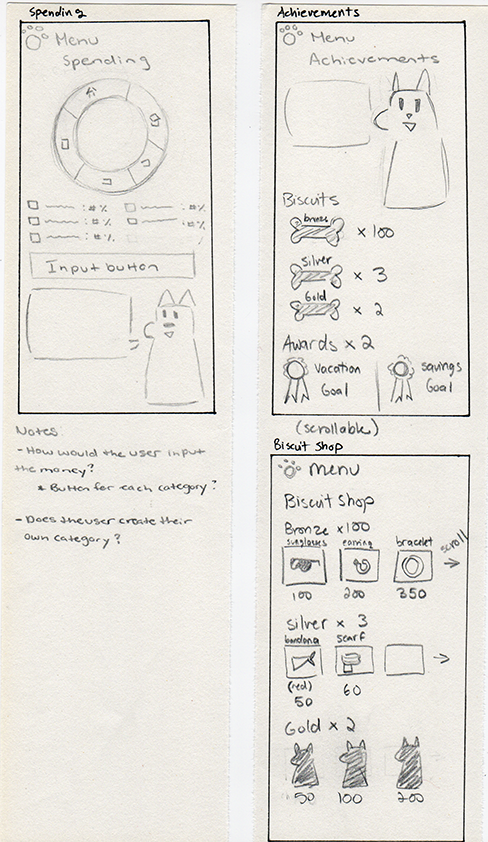 Spending
Menu
Spending
: #% : #%
: #% : #%
: #%
Input button
Notes
- How would the user input
the money?
* Button for each category?
- Does the user create their
own category?
Achievements
Menu
Achievements
Biscuits
bronze
x 100
silver
x 3
Gold
x 2
Awards x 2
vacation
Goal
savings
Goal
(scrollable)
Biscuit Shop
menu
Biscuit Shop
Bronze x100
sunglasses earring bracelet
scroll
100 200 350
silver x 3
bandana scarf
(red)
50 60
Gold x 2
50 100 200